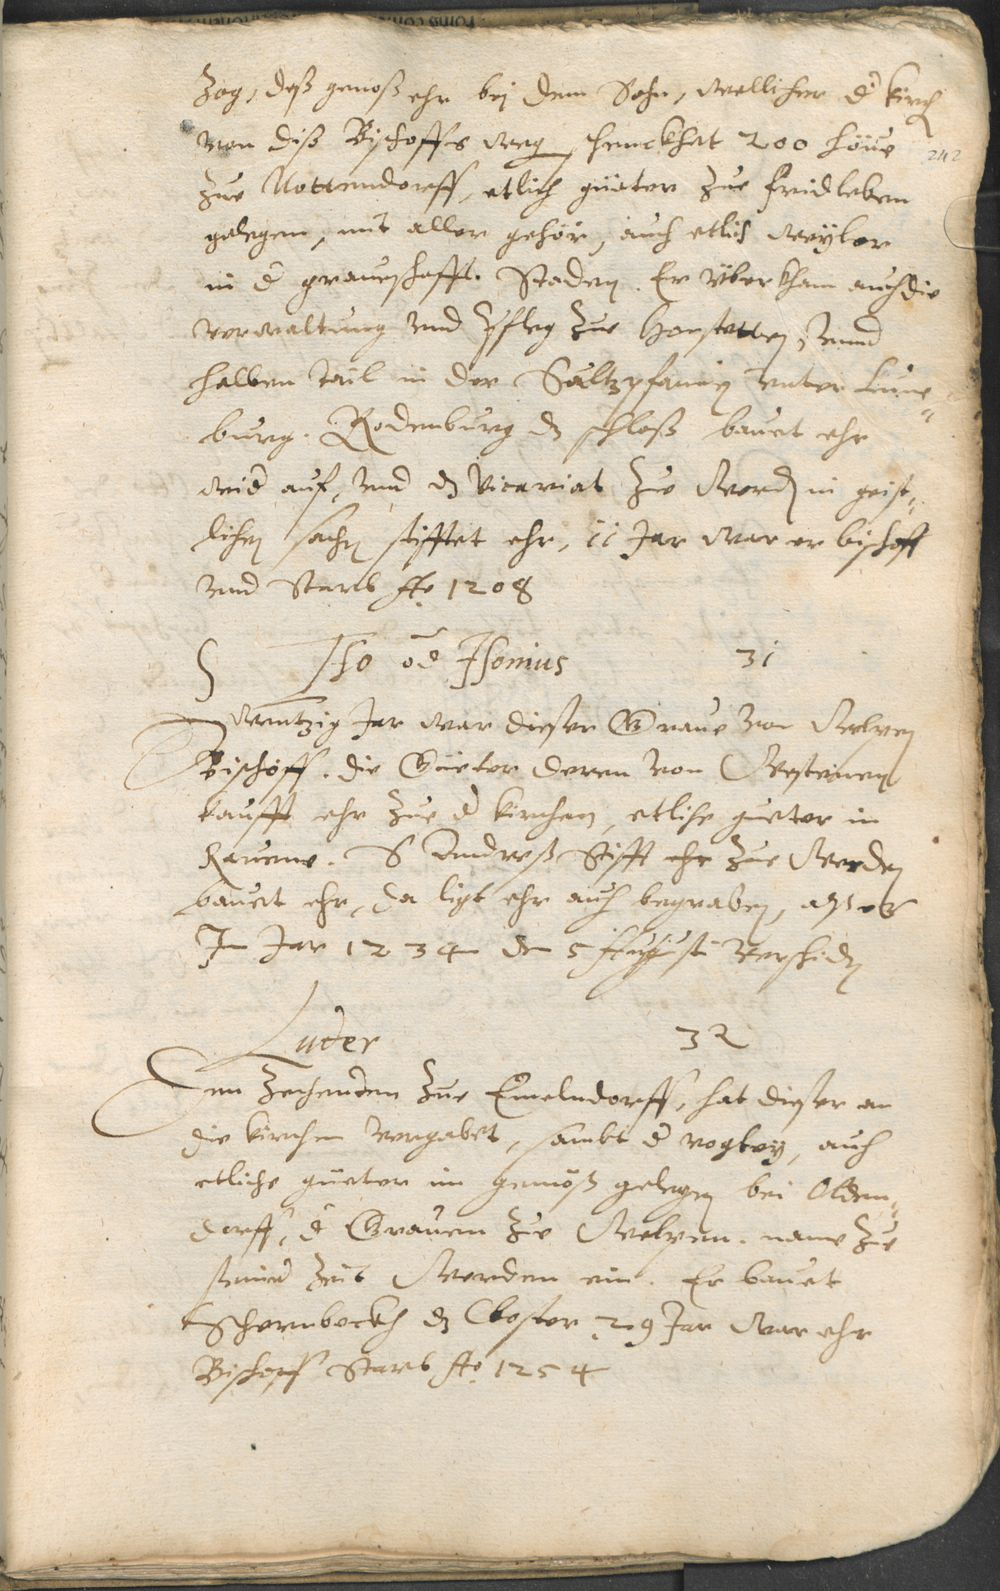 Zog, deß genoß ehr bej dem Sohn, wellicher d kirch
von diß Bischoffs weg schenckhet 200 höue
242
zue Nottendorff, etlich güeter zue Fridleben
gelegen, mit aller gehör, auch etlich weyler
in d graueschafft Staden. Er überkham auch die
verwaltung vnd Pfleg zue Horstetten, vnnd
halben tail in der Saltzpfannen vnter Lune-
burg. Rodenburg dz schloß bauet ehr
wid auf, vnd dz Vicariat zue Werden in geist-
lichen sachen stifftet ehr, 11 Jar war er bischoff
vnd Starb Ao 1208
Iso od Isonius 31
Zwentzig Jar war dieser Graue von Welpen
Bischoff. die Güeter deren von Westenen
kaufft ehr zue d kirchen, etliche güeter in
Rauene. S Andreß Stifft ehr zue Werden
bauet ehr, da ligt ehr auch begraben,
Im Jar 1234 den 5 Augusti verschiden
Luder 32
Den Zechenden zue Emelndorff, hat dieser an
die kirchen vergabet, sambt d vogtey, auch
etliche güeter im gemöß gelegen bei Olden-
dorff, d Grauen zue Welpen. name zue
seiner Zeit Werden ein. Er bauet
Schernbeckh dz Closter 29 Jar war ehr
Bischoff Starb Ao 1254